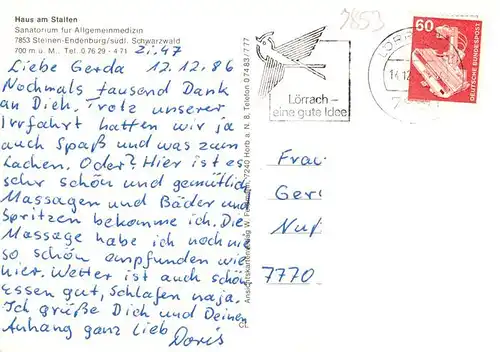 Haus am Stalten
Sanatorium für Allgemeinmedizin
7853 Steinen-Endenburg/südl. Schwarzwald
700 m ü. M., Tel. 0 76 29 - 4 71
Zi. 47
Liebe Gerda 12.12.86
Nochmals tausend Dank
an Dich. Trotz unserer
Irrfahrt hatten wir ja
auch Spaß und was zum
Lachen. Oder? Hier ist es
sehr schön und gemütlich
Massagen und Bäder und
Spritzen bekomme ich. Die
Massage habe ich noch nie
so schön empfunden wie
hier. Wetter ist auch schön
Essen gut, Schlafen naja.
Ich grüße Dich und Deinen
Anhang ganz lieb Doris
Ansichtskartenverlag W. 7240 Horb a. N. 8, Telefon 0 74 83 / 7 77
7853
Lörrach –
eine gute Idee
14.12
60
DEUTSCHE BUNDESPOST
Frau
Ger
Nuf
7770